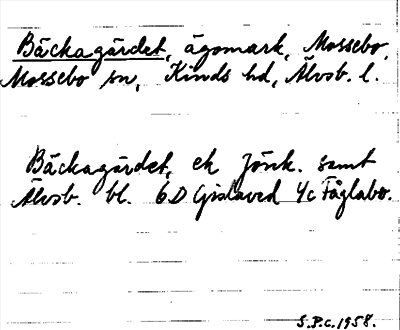 Bäckagärdet, ägomark, Mossebo,
Mossebo sn, Kinds hd, Älvsb. l.
Bäckagärdet, ek Jönk. samt
Älvsb. bl. 6D Gislaved 4c Fåglabo.
S.P.C. 1958.